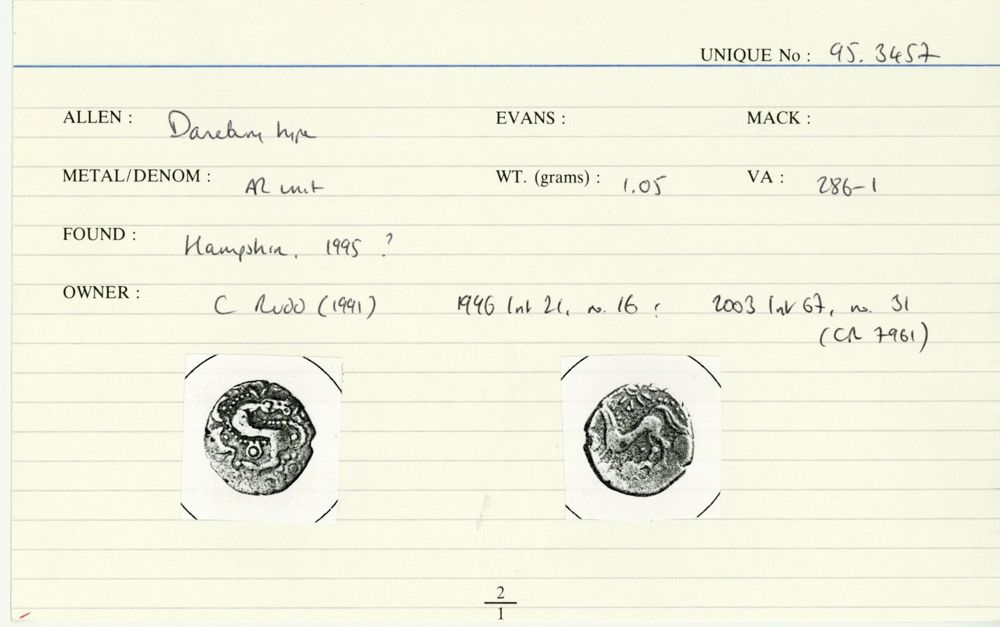 UNIQUE No : 95. 3457
ALLEN : Danebury type EVANS : MACK :
METAL/DENOM : AR unit WT. (grams) : 1.05 VA : 286-1
FOUND : Hampshire, 1995 ?
OWNER : C Rudd (1991) 1996 list 21, no. 16 ; 2003 list 67, no. 31
(CR 7961)
2
1